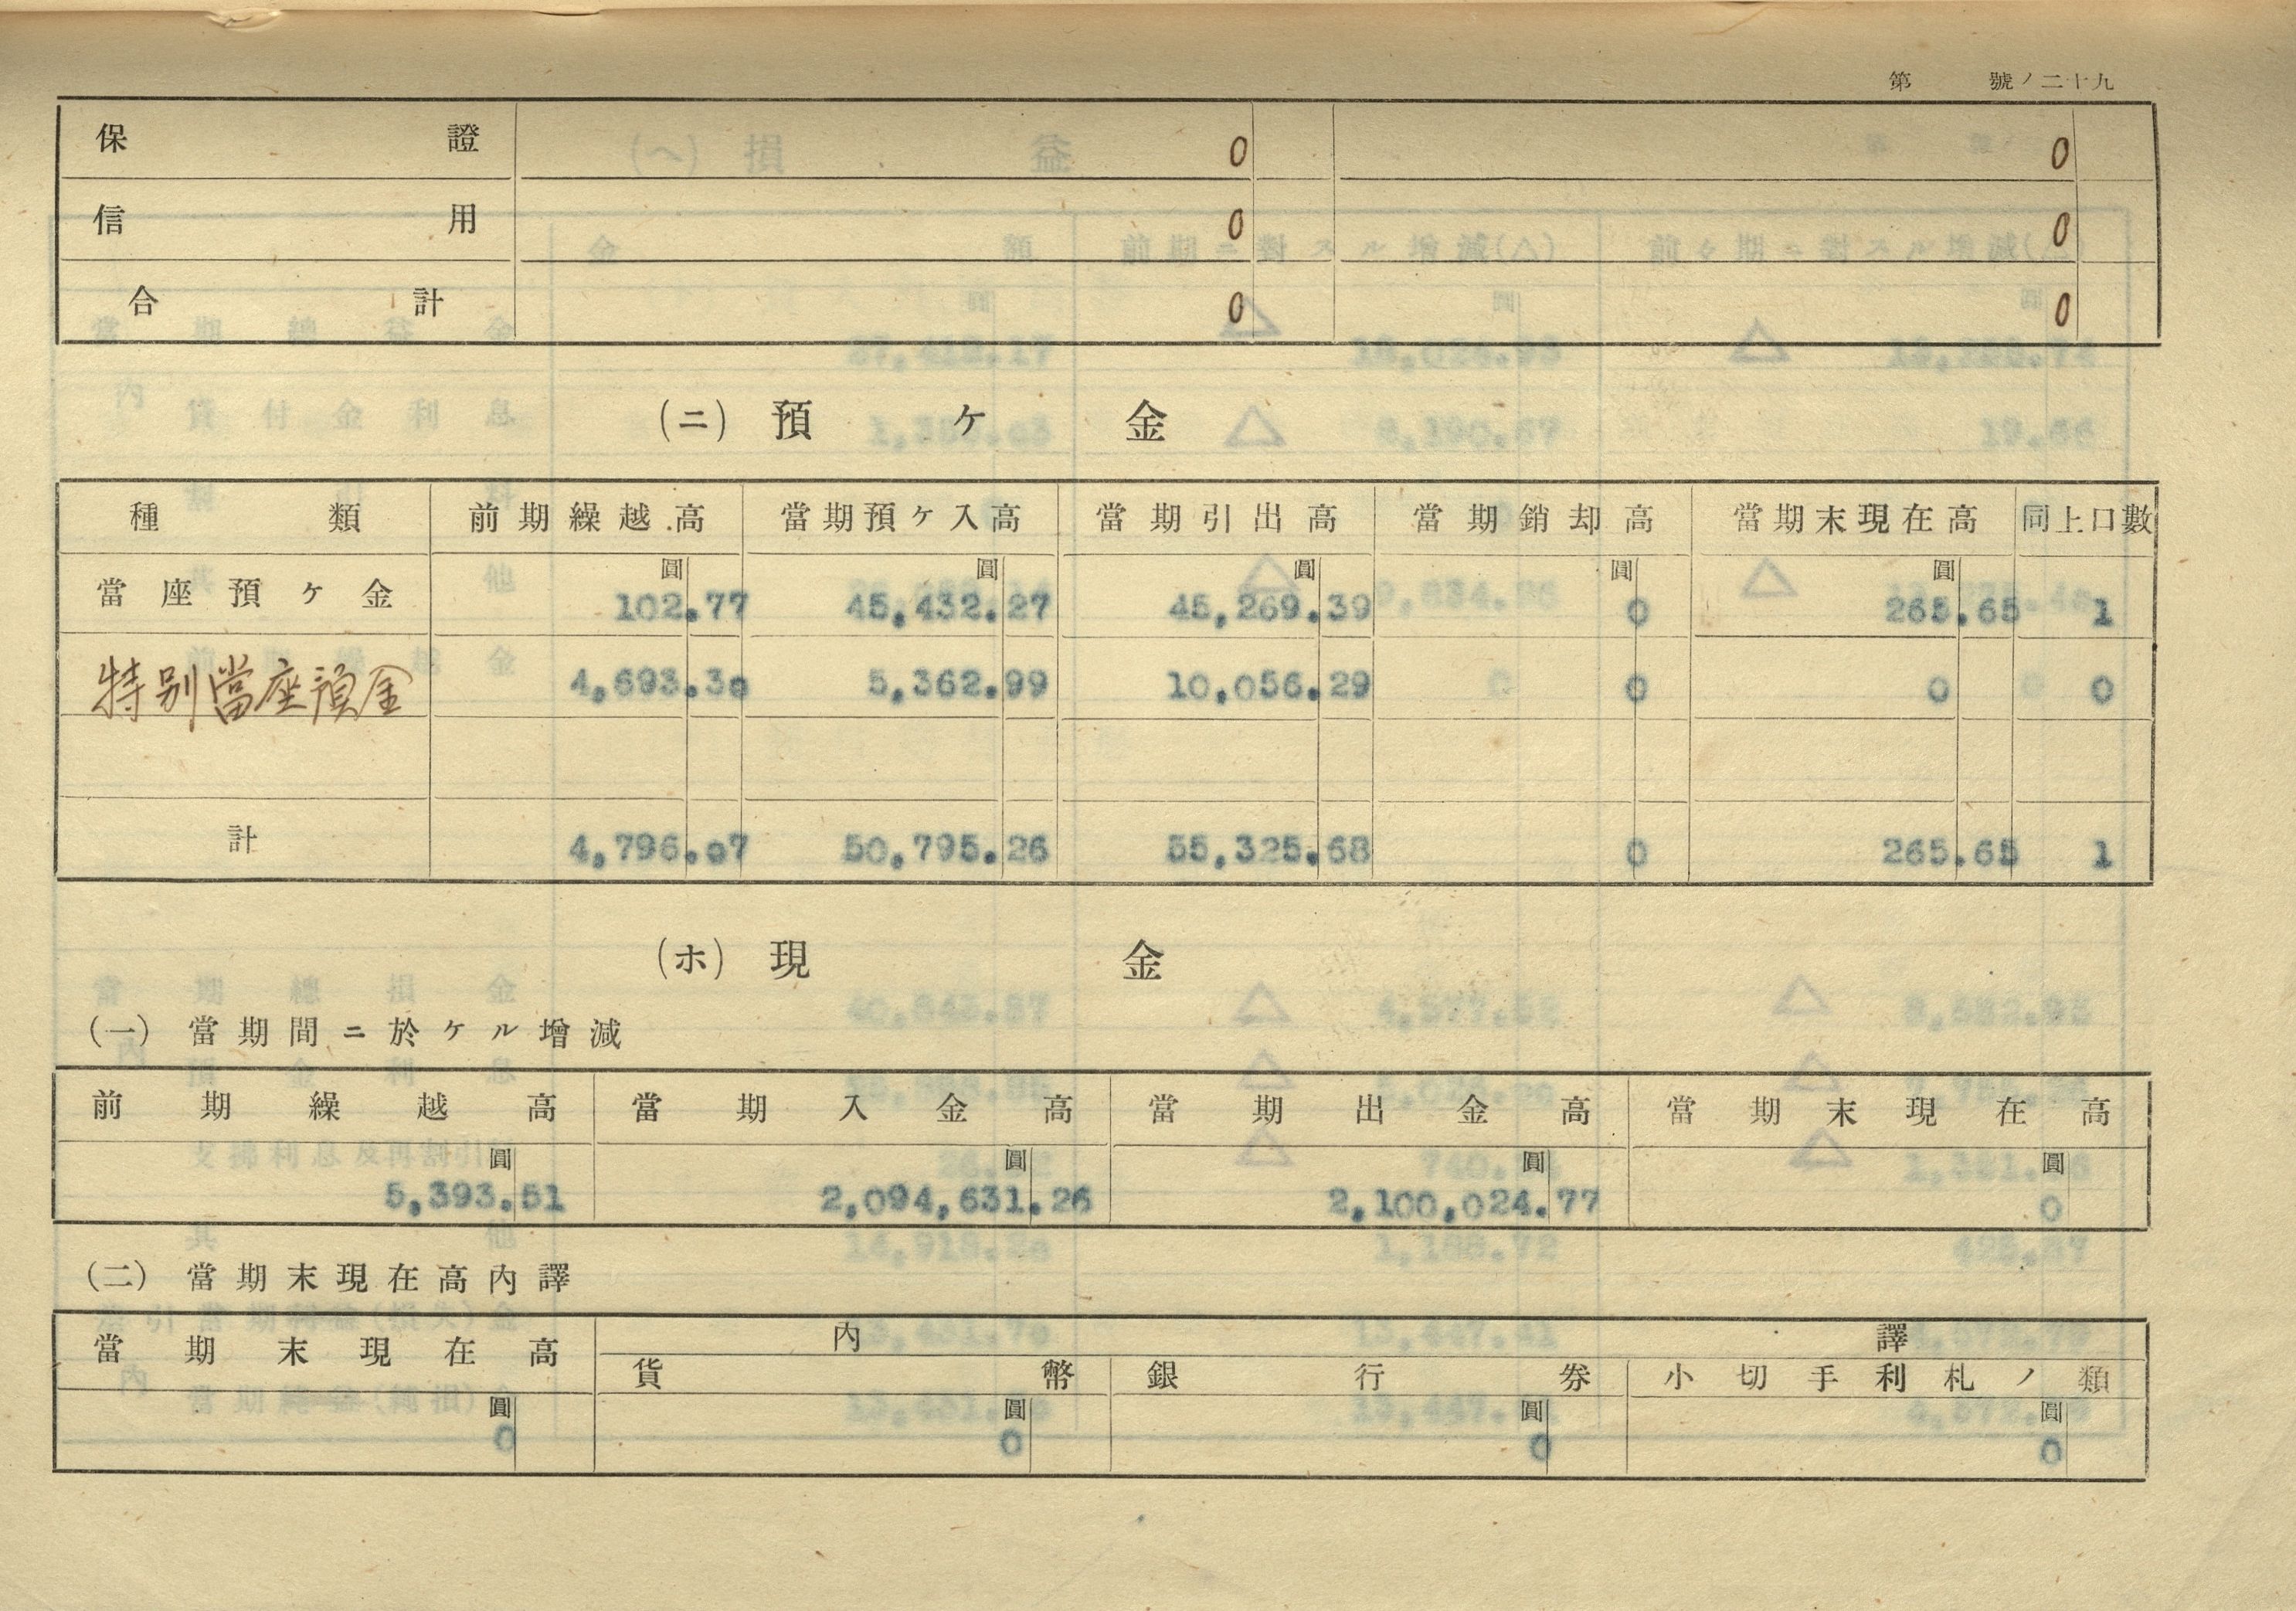 第 號ノ二十九
保證 0 0
信用 0 0
合計 0 0
(ニ) 預ケ金
種類 前期繰越高 當期預ケ入高 當期引出高 當期銷却高 當期末現在高 同上口數
圓 圓 圓 圓 圓
當座預ケ金 102.77 45,432.27 45,269.39 0 265.65 1
特別當座預金 4,693.30 5,362.99 10,056.29 0 0 0
計 4,796.07 50,795.26 55,325.68 0 265.65 1
(ホ) 現金
(一) 當期間ニ於ケル增減
前期繰越高 當期入金高 當期出金高 當期末現在高
圓 圓 圓 圓
5,393.51 2,094,631.26 2,100,024.77 0
(二) 當期末現在高內譯
當期末現在高 內譯
貨幣 銀行券 小切手利札ノ類
圓 圓 圓 圓
0 0 0 0